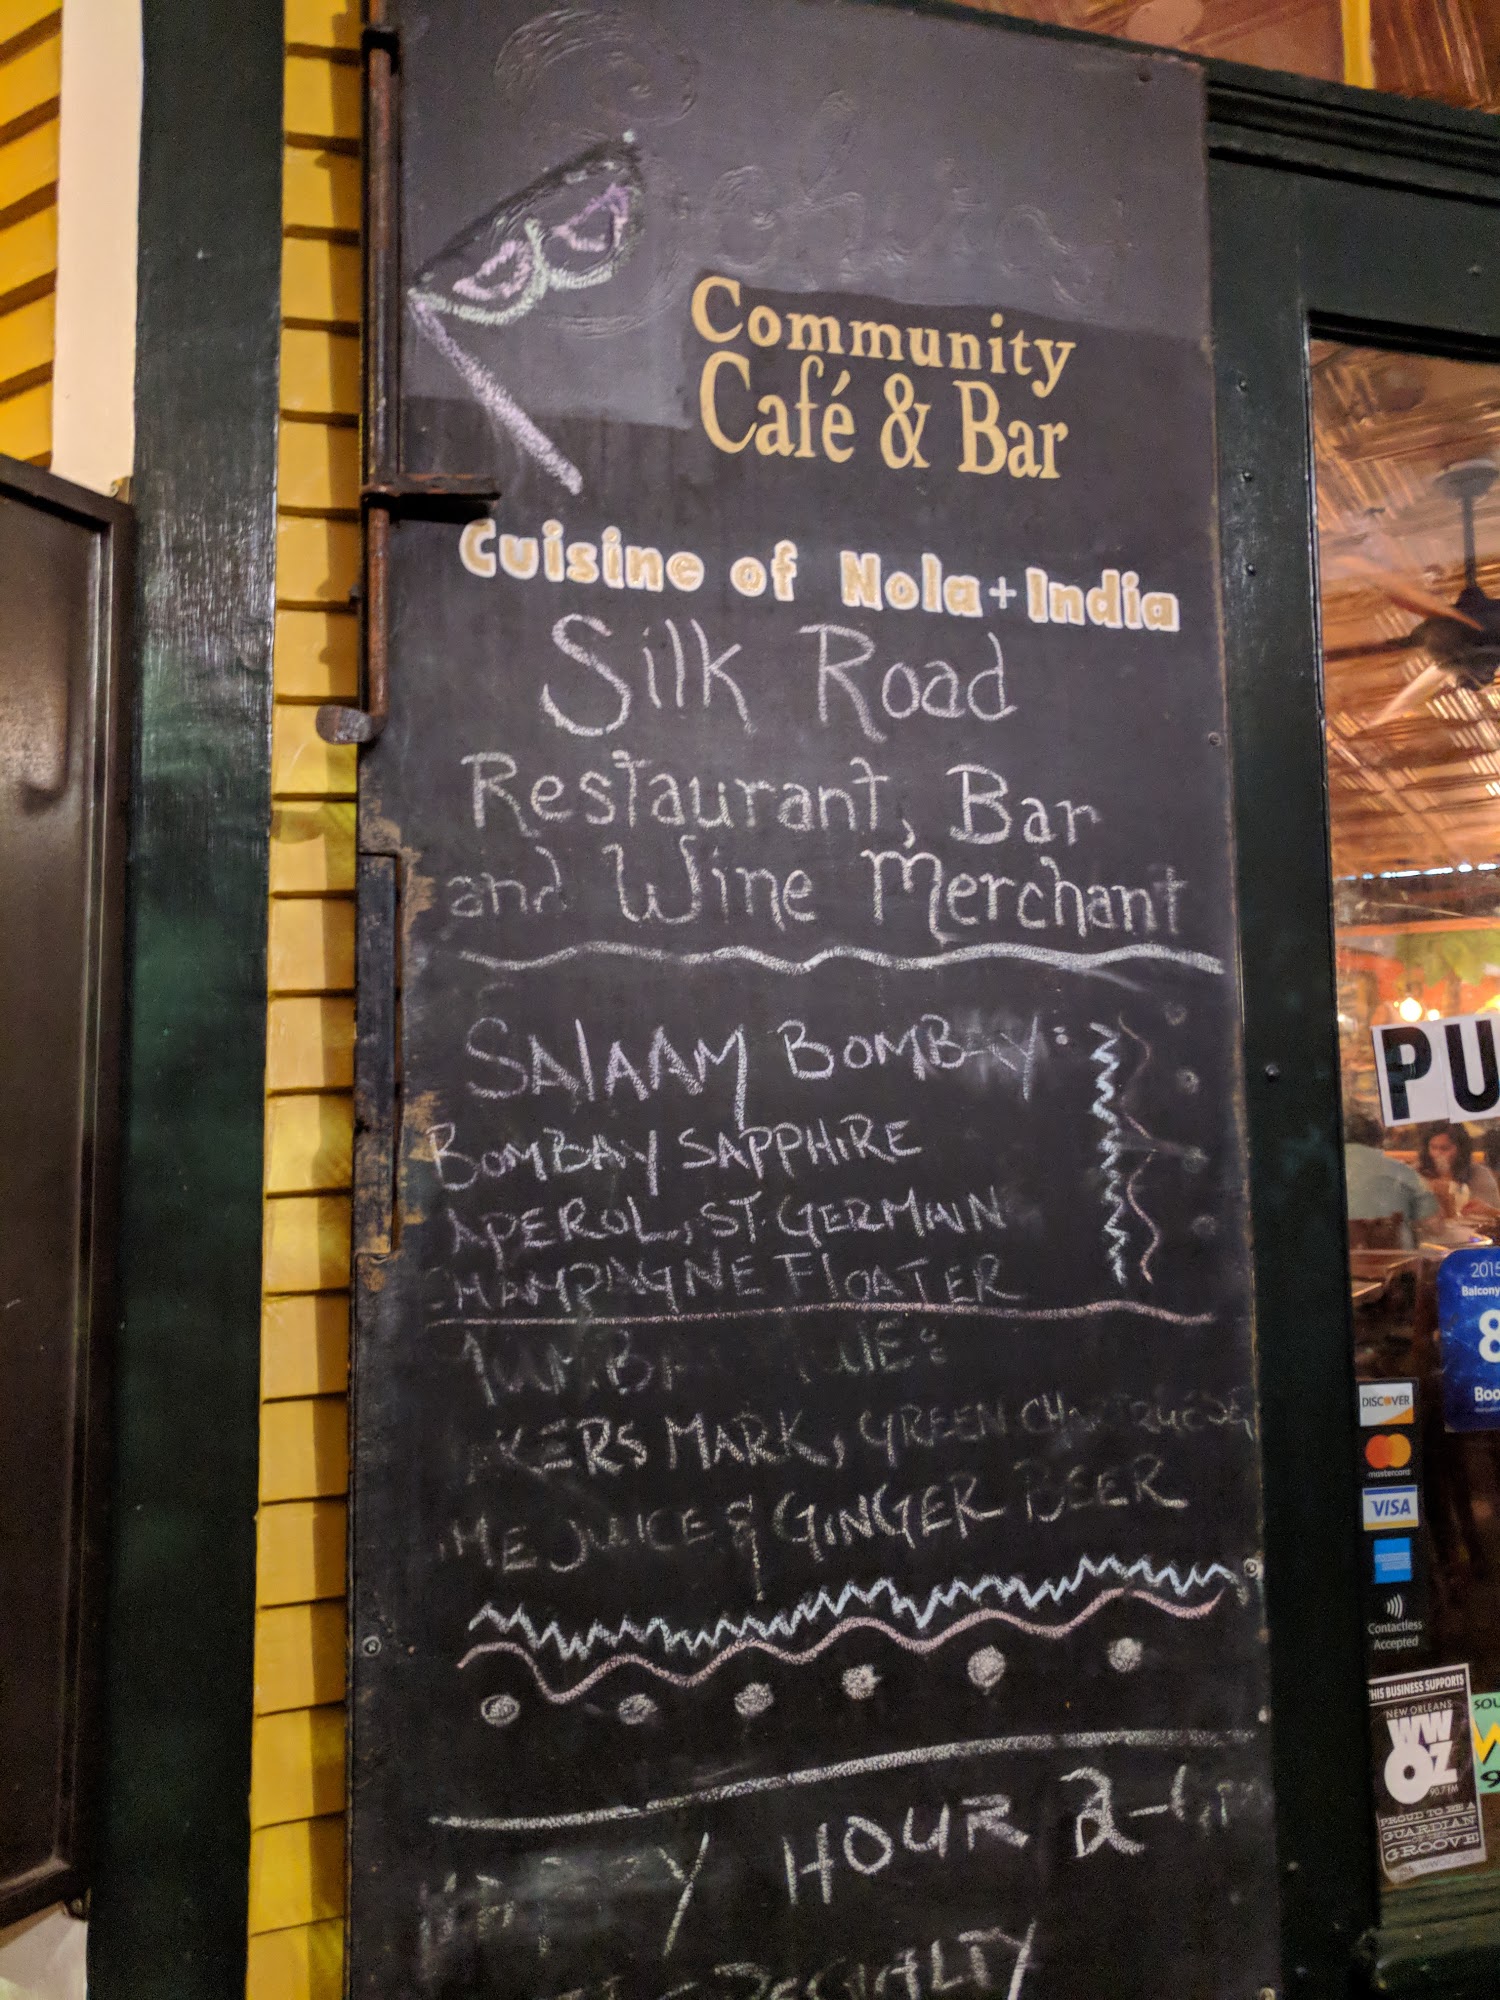 Community
Café & Bar
Cuisine of Nola + India
Silk Road
Restaurant, Bar
and Wine Merchant
SALAAM BOMBAY:
BOMBAY SAPPHIRE
APEROL, ST. GERMAIN
CHAMPAGNE FLOATER
MAKERS MARK, GREEN CHARTREUSE
LIME JUICE & GINGER BEER
HAPPY HOUR 2-6PM
PU
2015
Balcony
8
Boo
DISCOVER
mastercard
VISA
Contactless
Accepted
THIS BUSINESS SUPPORTS
NEW ORLEANS
WW
OZ
90.7 FM
PROUD TO BE A
GUARDIAN
OF THE
GROOVE!
SOU
9